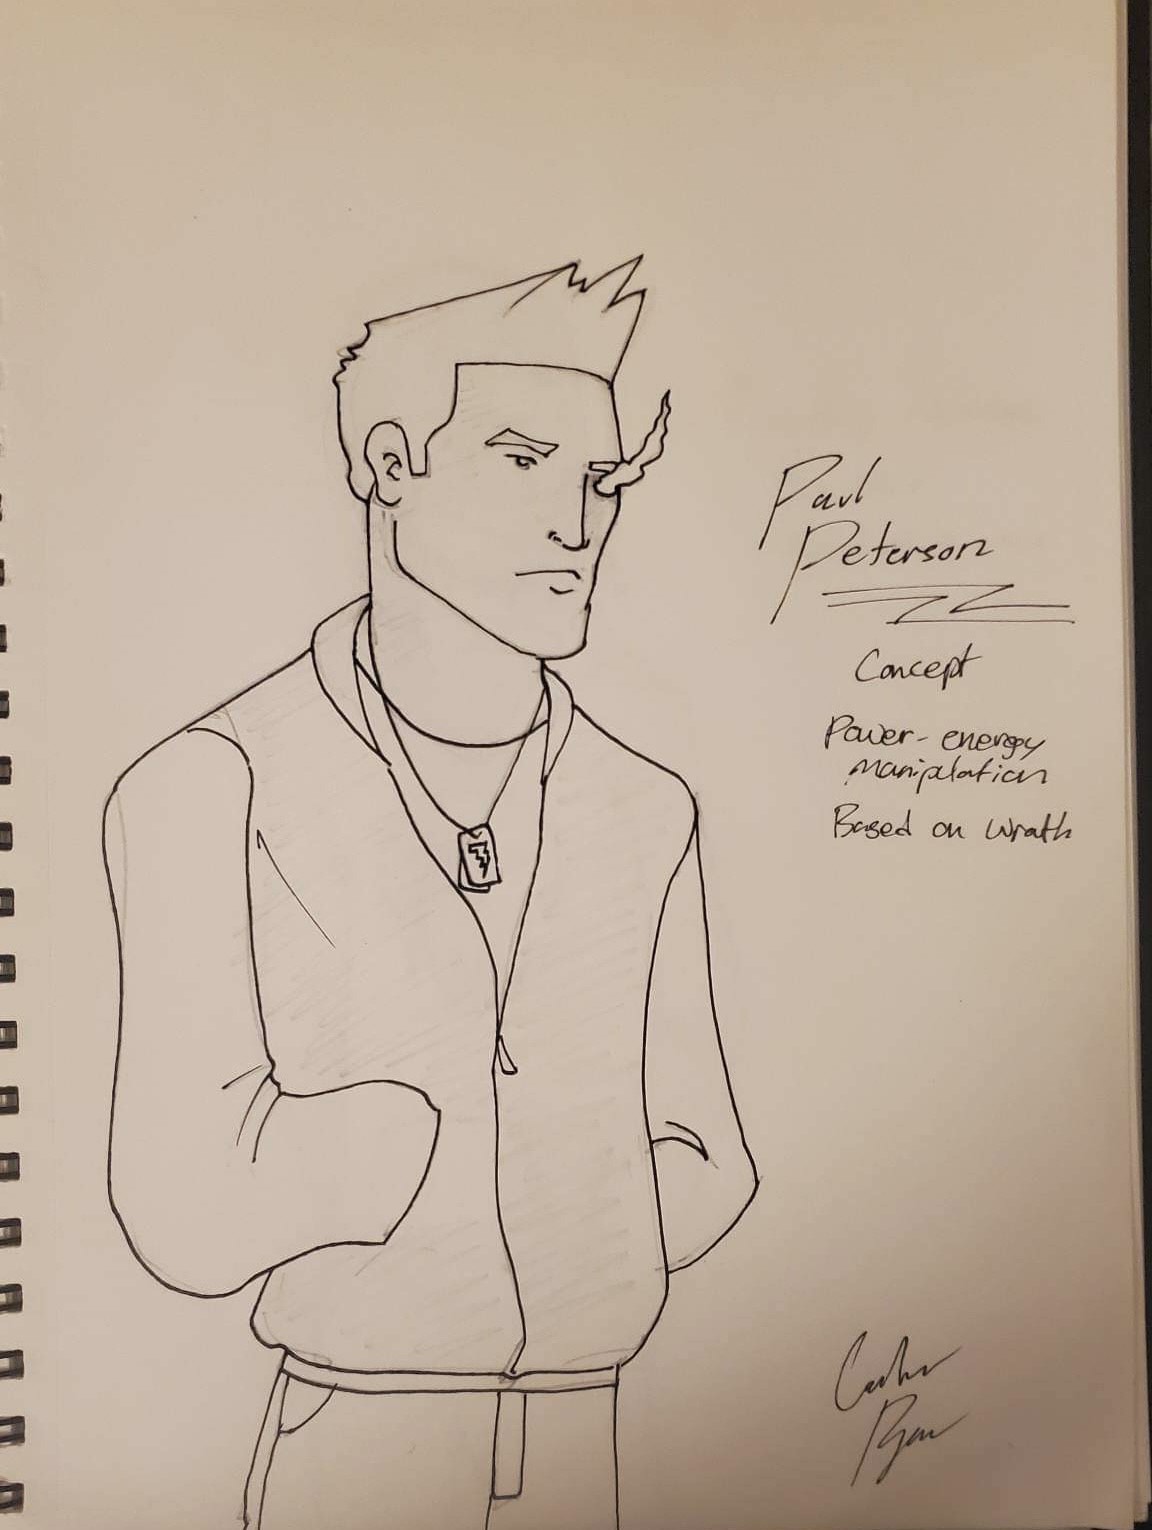 Paul
Peterson
Concept
Power - energy
manipulation
Based on wrath
Ryan